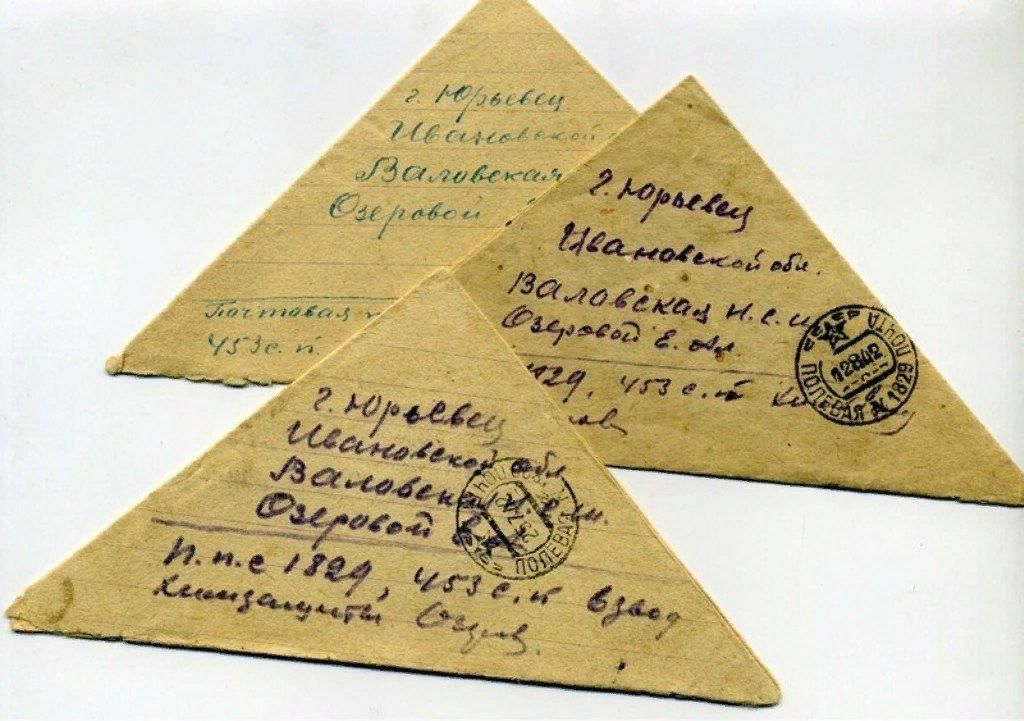 г. Юрьевец
Ивановской
Валовская
Озеровой
Почтовая
453 с.п.
г. Юрьевец
Ивановской обл.
Валовская н.с.ш.
Озеровой Е. Ал.
1829, 453 с.п.
СССР
ПОЧТА
12842
ПОЛЕВАЯ
1829
г. Юрьевец
Ивановской обл
Валовская н.с.ш.
Озеровой
П.п.с 1829, 453 с.п взвод
химзащиты Озеров.
ПОЧТА
ПОЛЕВАЯ